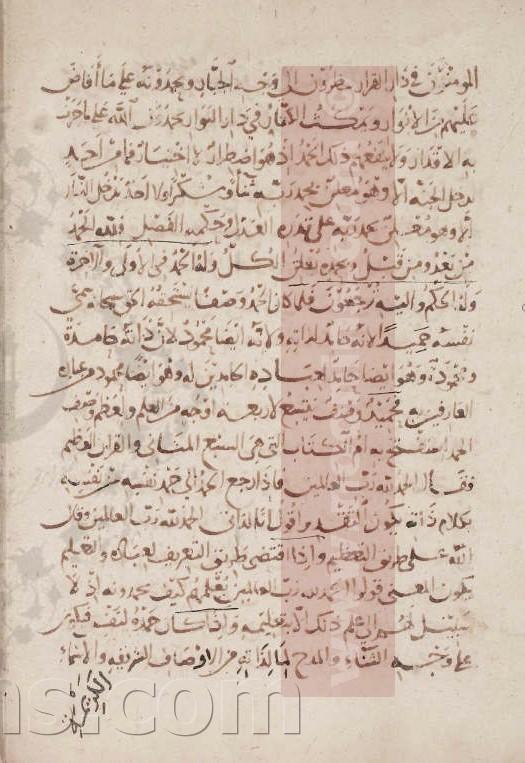 المومنون في دار القرار ينظرون الى وجه الجبار ويحمدونه على ما أفاض
عليهم من الانوار و الاقدار في دار البوار يحمدون الله على ما جرت
به الاقدار ولا ينفعهم ذلك الحمد اذ هو اضطرار لا اختيار فما من احد
يدخل الجنة الا وهو معلن بحمد ربه ثناء وشكرا ولا احد يدخل النار
الا وهو معلن بحمد ربه على العدل وحكمه الفصل فلله الحمد
من بعد ومن قبل وبحمده تعلن الكل وله الحمد في الاولى والآخرة
وله الحكم واليه ترجعون فلما كان الحمد وصفا يستحقه الحق سبحانه سمى
نفسه حميدا لانه حامد لذاته ولانه ايضا محمود لان ذاته حامدة
ومحمودة وهو ايضا حامد لعباده الحامدين له وهو ايضا محمود من عباده
العارفين به لاربعة اوجه من العلم والعظم وصف
الحمد افتتح به ام الكتاب التي هي السبع المثاني والقران العظيم
فقال الحمد لله رب العالمين فاذا رجع الحمد الى حمد نفسه من نفسه
بكلام ذاته يكون التقدير واقول انا لذاتي الحمد لله رب العالمين وقال
الله على طريق التعظيم واذا اقتضى طريق التعريف لعباده والتعليم
يكون المعنى قولوا الحمد لله رب العالمين كيف يحمدونه اذ لا
سبيل لهم الى علم ذلك الا بتعليمه واذا كان حمده لنفسه فيكون
على وجه الثناء والمدح لما لذاته من الاوصاف الشريفة والاسماء
الكريمة
ms.com